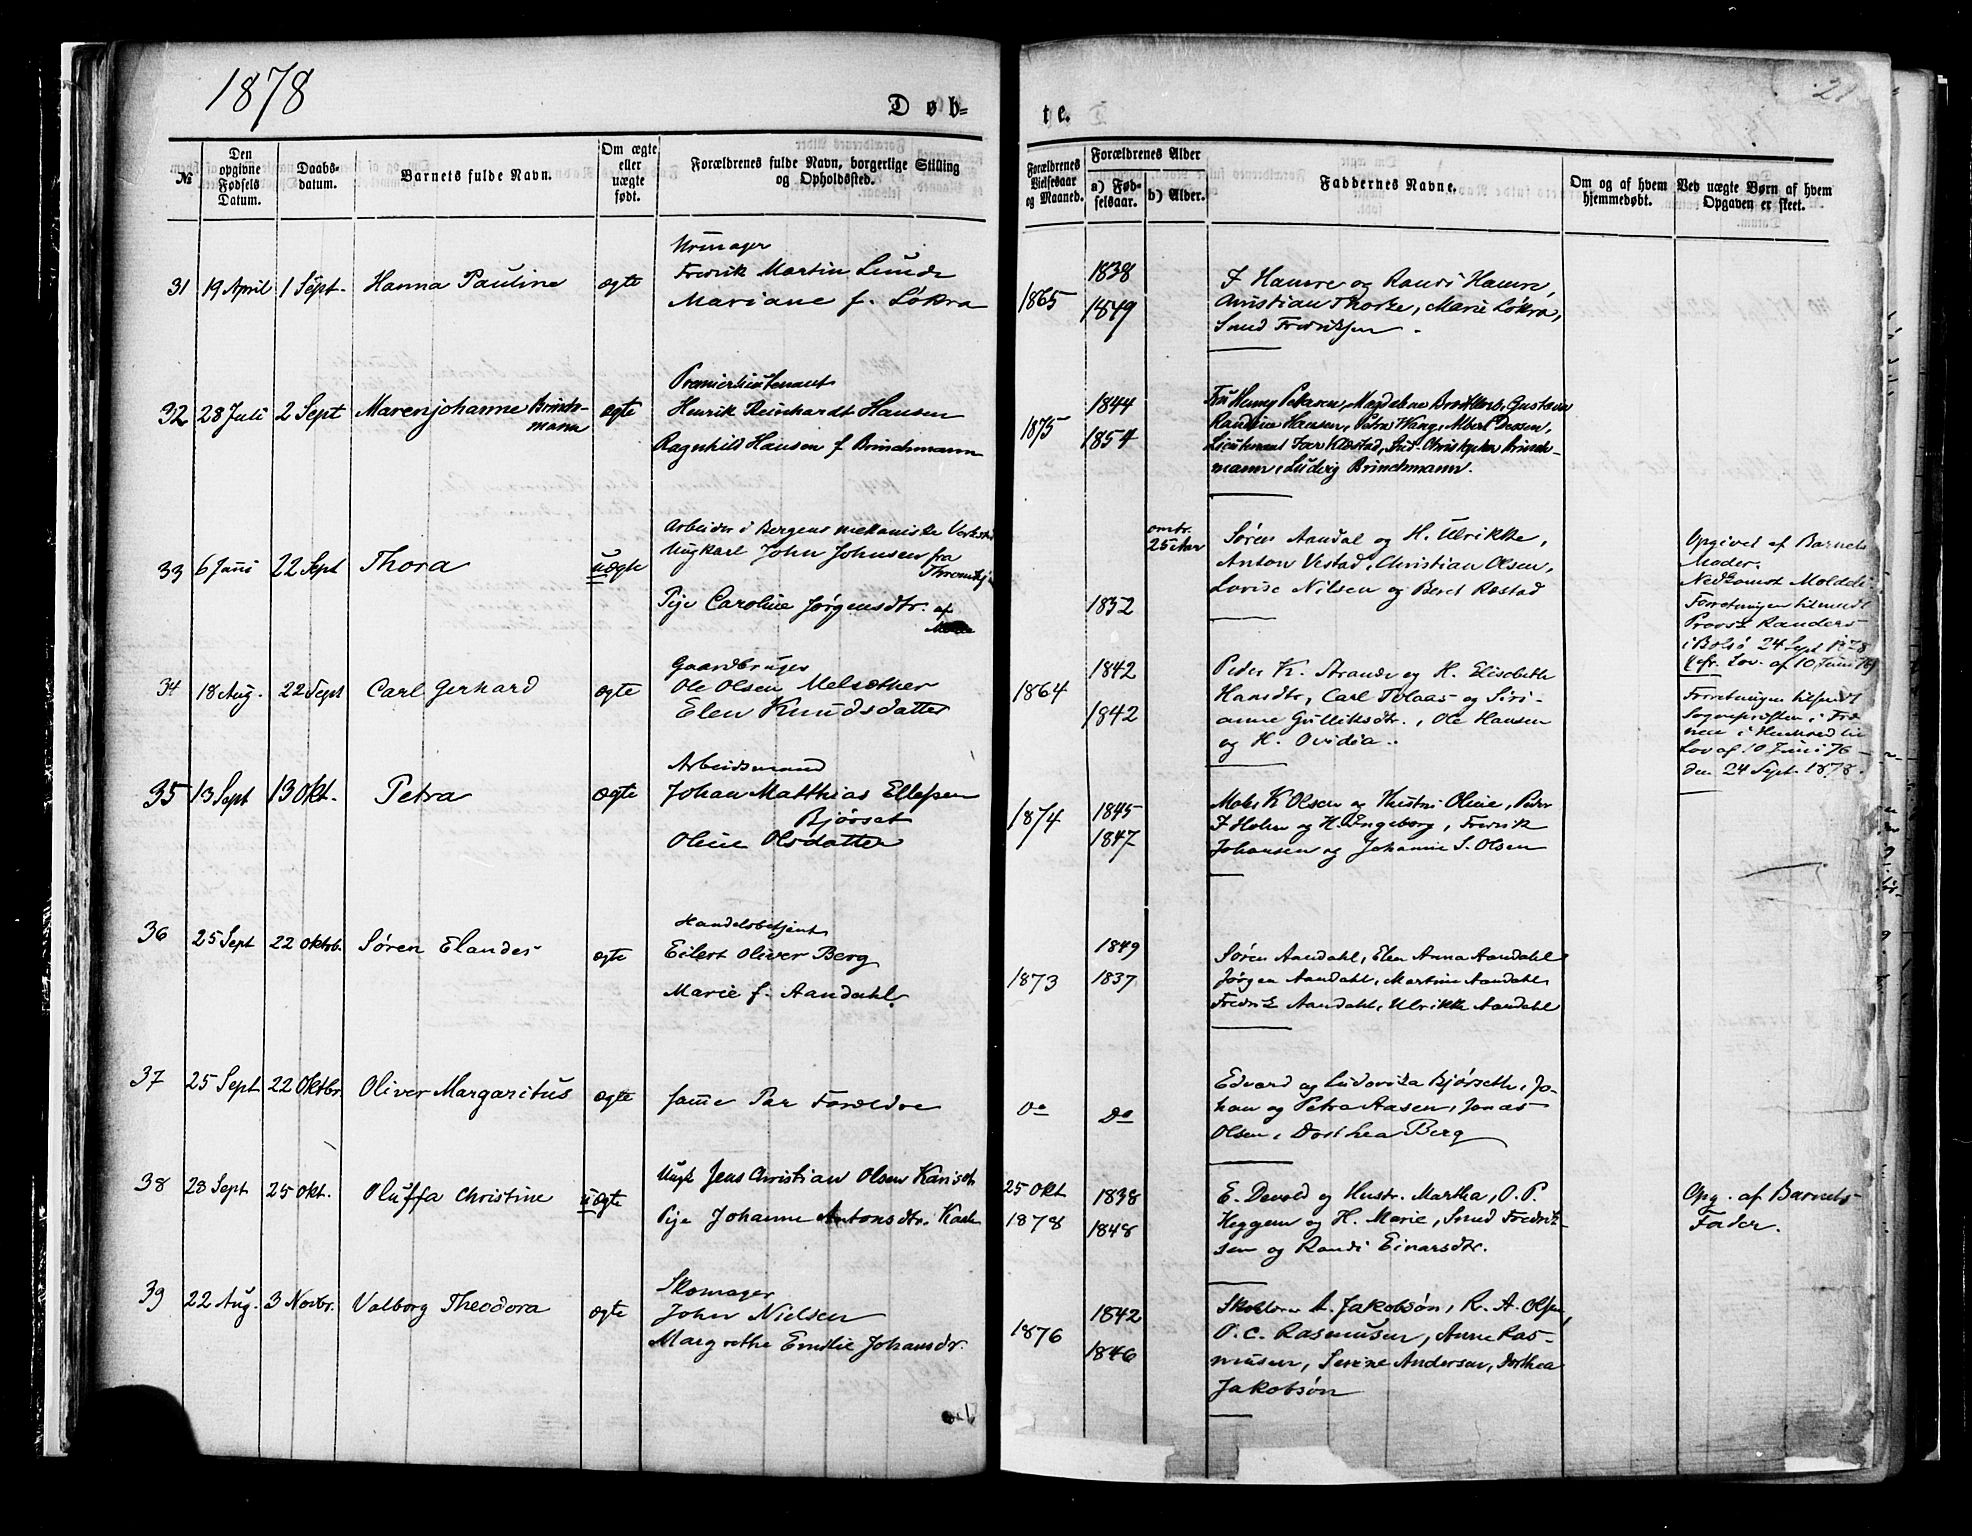 1878
Døb=
te.
№
Den opgivne Fødsels Datum.
Daabs-datum.
Barnets fulde Navn.
Om ægte eller uægte født.
Forældrenes fulde Navn, borgerlige Stilling og Opholdssted.
Forældrenes Vielsesaar og Maaned.
Forældrenes Alder
a) Fød-selsaar.
b) Alder.
Faddernes Navne.
Om og af hvem hjemmedøbt.
Ved uægte Børn af hvem Opgaven er skeet.
31 19 April 1 Sept. Hanna Pauline ægte
Urmager
Fredrik Martin Lunde
Mariane f. Løkra
1865
1838
1849
J Hamre og Randi Hamre,
Christian Thorke, Marie Løkra,
Smed Fredriksen.
32 28 Juli 2 Sept Marenjohanne Brinch-
mann
ægte
Premierlieutenant
Henrik Reinhardt Hansen
Ragnhild Hansen f Brinchmann
1875
1844
1854
Fru Henny Petersen, Magdalene, Gustava
Randine Hansen, Petra Wang, Albert Dessen,
Lieutenant Iver Klæstad, Christopher Brinch-
mann, Ludvig Brinchmann.
33 6 Juni 22 Sept Thora uægte
Arbeider i Bergens mekaniske Verksted
Ungkarl John Johnsen fra
Pige Caroline Jørgensdtr. af
omtr.
25 Aar
1852
Søren Aandal og H. Ulrikke,
Anton Vestad, Christian Olsen,
Lovise Nilsen og Beret Røstad
Opgivet af Barnets
Moder.
Nedkomst Molde
Forretningen tilmeldt
Provst Randers
i Bolsø 24 Sept 1878
(jfr. Lov. af 10 Juni 76)
34 18 Aug. 22 Sept Carl Gerhard ægte
Gaardbruger
Ole Olsen Melsæther
Elen Knudsdatter
1864
1842
1842
Peder K. Strande og H. Elisabeth
Hansdtr, Carl Tolaas og Siri-
anne Gulliksdtr., Ole Hansen
og H. Ovidia.
Forretningen tilmeldt
Sognepræsten i Fræ-
nen i Henhold til
Lov af 10 Juni 76
den 24 Sept. 1878.
35 13 Sept 13 Okt. Petra ægte
Arbeidsmand
Johan Matthias Ellefsen
Bjørset
Oline Olsdatter
1874
1845
1847
K Olsen og Hustru Oline, Peder
J Holm og H. Engeborg, Fredrik
Johansen og Johanne S. Olsen
36 25 Sept 22 Oktob. Søren Elandes ægte
Handelsbetjent
Eilert Oliver Berg
Marie f. Aandahl.
1873
1849
1837
Søren Aandahl, Elen Anna Aandahl
Jørgen Aandahl, Martine Aandahl,
Fredrik Aandahl, Ulrikke Aandahl
37 25 Sept 22 Oktbr. Oliver Margaritus ægte
Samme Par Forældre
Do
Do
Edvard og Ludovika Bjørseth, Jo-
han og Petra Aasen, Jonas
Olsen, Dorthea Berg
38 28 Sept 25 Okt. Oluffa Christine uægte
Ungk Jens Christian Olsen
Pige Johanne Antonsdtr.
25 Okt
1878
1838
1848
E. Devold og Hustr. Martha, O. P.
Heggem og H. Marie, Smed Fredrik-
sen og Randi Einarsdtr.
Opg. af Barnets
Fader.
39 22 Aug. 3 Novbr. Valborg Theodora ægte
Skomager
John Nielsen
Margrethe Emilie Johansdr.
1876
1842
1846
A. Jakobsøn, R. A. Olsen,
O. C. Rasmusen, Anne Ras-
musen, Serine Andersen, Dorthea
Jakobsøn